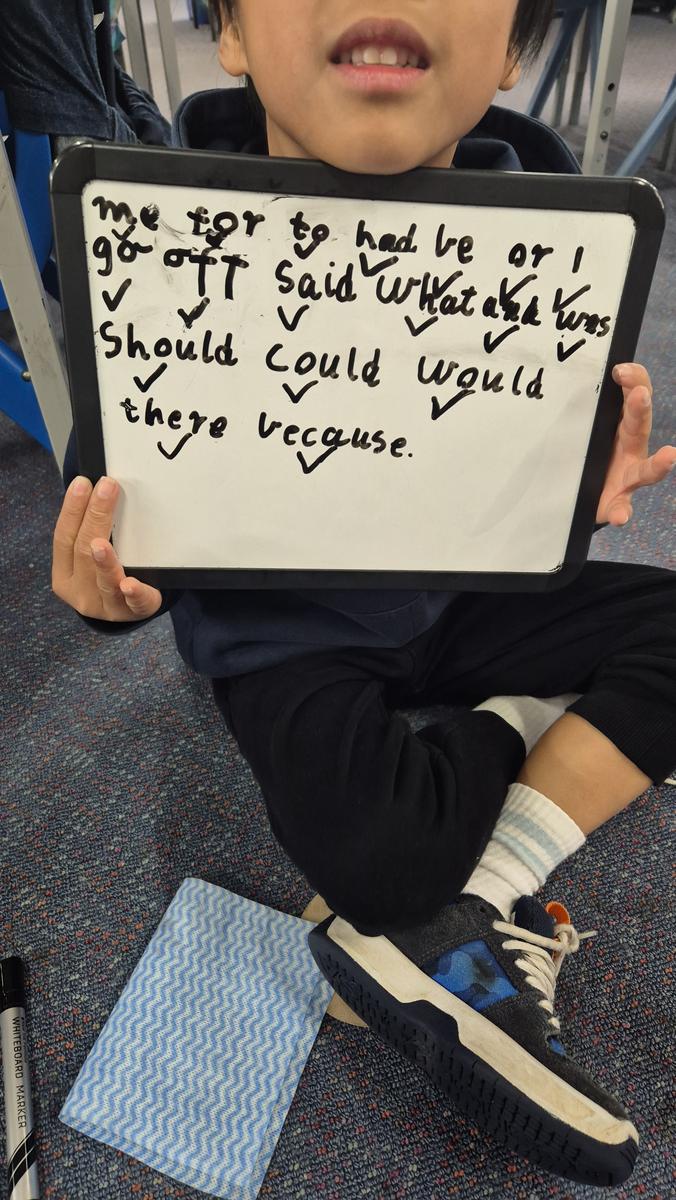 me for to had be or I
go off said what and was
should could would
there because.
WHITEBOARD MARKER